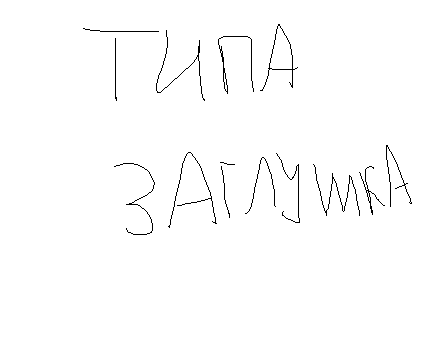 ТИПА
ЗАГЛУШКА